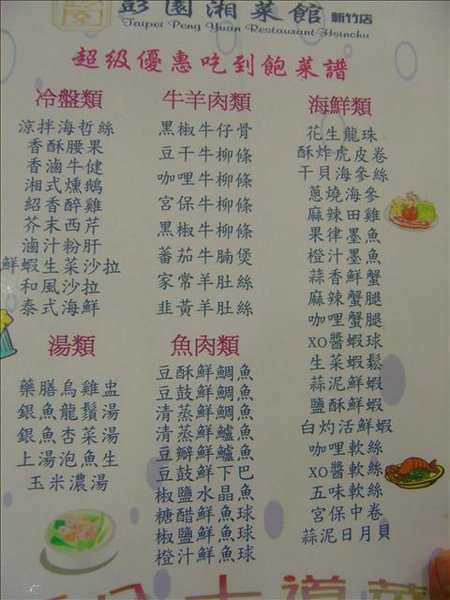 彭園湘菜館 新竹店
Taipei Peng Yuan Restaurant Hsinchu
超級優惠吃到飽菜譜
冷盤類
涼拌海哲絲
香酥腰果
香滷牛健
湘式燻鵝
紹香醉雞
芥末西芹
滷汁粉肝
鮮蝦生菜沙拉
和風沙拉
泰式海鮮
湯類
藥膳烏雞盅
銀魚龍鬚湯
銀魚杏菜湯
上湯泡魚生
玉米濃湯
牛羊肉類
黑椒牛仔骨
豆干牛柳條
咖哩牛柳條
宮保牛柳條
黑椒牛柳條
蕃茄牛腩煲
家常羊肚絲
韭黃羊肚絲
魚肉類
豆酥鮮鯛魚
豆鼓鮮鯛魚
清蒸鮮鯛魚
清蒸鮮鱸魚
豆瓣鮮鱸魚
豆鼓鮮下巴
椒鹽水晶魚
糖醋鮮魚球
椒鹽鮮魚球
橙汁鮮魚球
海鮮類
花生龍珠
酥炸虎皮卷
干貝海參絲
蔥燒海參
麻辣田雞
果律墨魚
橙汁墨魚
蒜香鮮蟹
麻辣蟹腿
咖哩蟹腿
XO醬蝦球
生菜蝦鬆
蒜泥鮮蝦
鹽酥鮮蝦
白灼活鮮蝦
咖哩軟絲
XO醬軟絲
五味軟絲
宮保中卷
蒜泥日月貝